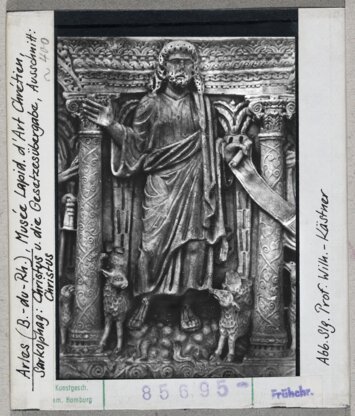 Arles (B.-du-Rh.), Musée Lapid. d'Art Chrétien,
Sarkophag: Christus u. die Gesetzesübergabe, Ausschnitt:
Christus
~ 400
Abb. Slg. Prof. Wilh.-Kästner
Kunstgesch.
em. Hamburg
85695-
Frühchr.